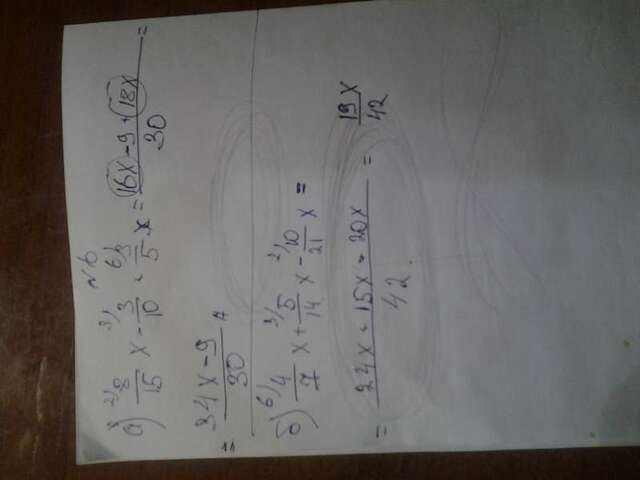 N6
а) 2/8/15 x - 3/3/10 + 6/3/5 x = (16x - 9 + 18x)/30 =
= (34x - 9)/30
б) 6/4/7 x + 3/5/14 x - 2/10/21 x =
= (24x + 15x - 20x)/42 = 19x/42